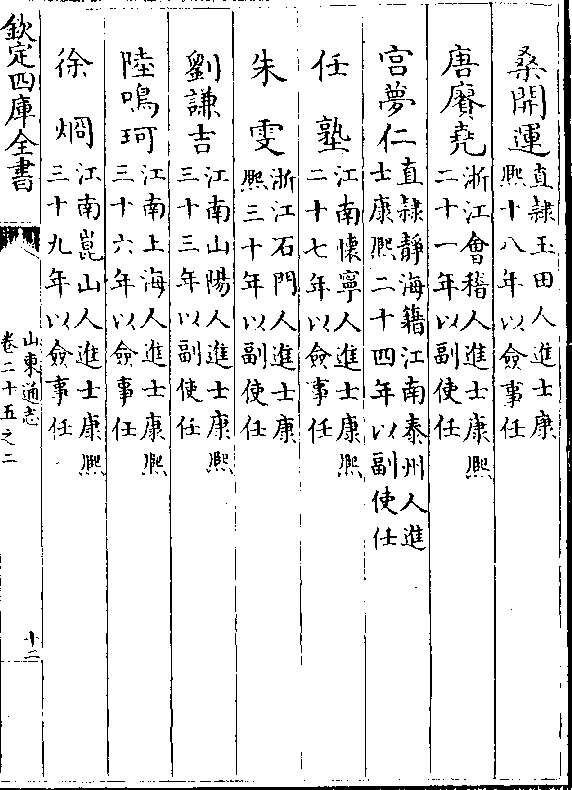 桑開運直隸玉田人進士康
熙十八年以僉事任
唐賡堯浙江會稽人進士康熙
二十一年以副使任
宫夢仁直隸靜海籍江南泰州人進
士康熙二十四年以副使任
任塾江南懷寧人進士康熙
二十七年以僉事任
朱雯浙江石門人進士康
熙三十年以副使任
劉謙吉江南山陽人進士康熙
三十三年以副使任
陸鳴珂江南上海人進士康熙
三十六年以僉事任
徐炯江南崑山人進士康熙
三十九年以僉事任
欽定四庫全書
山東通志
卷二十五之二
十二